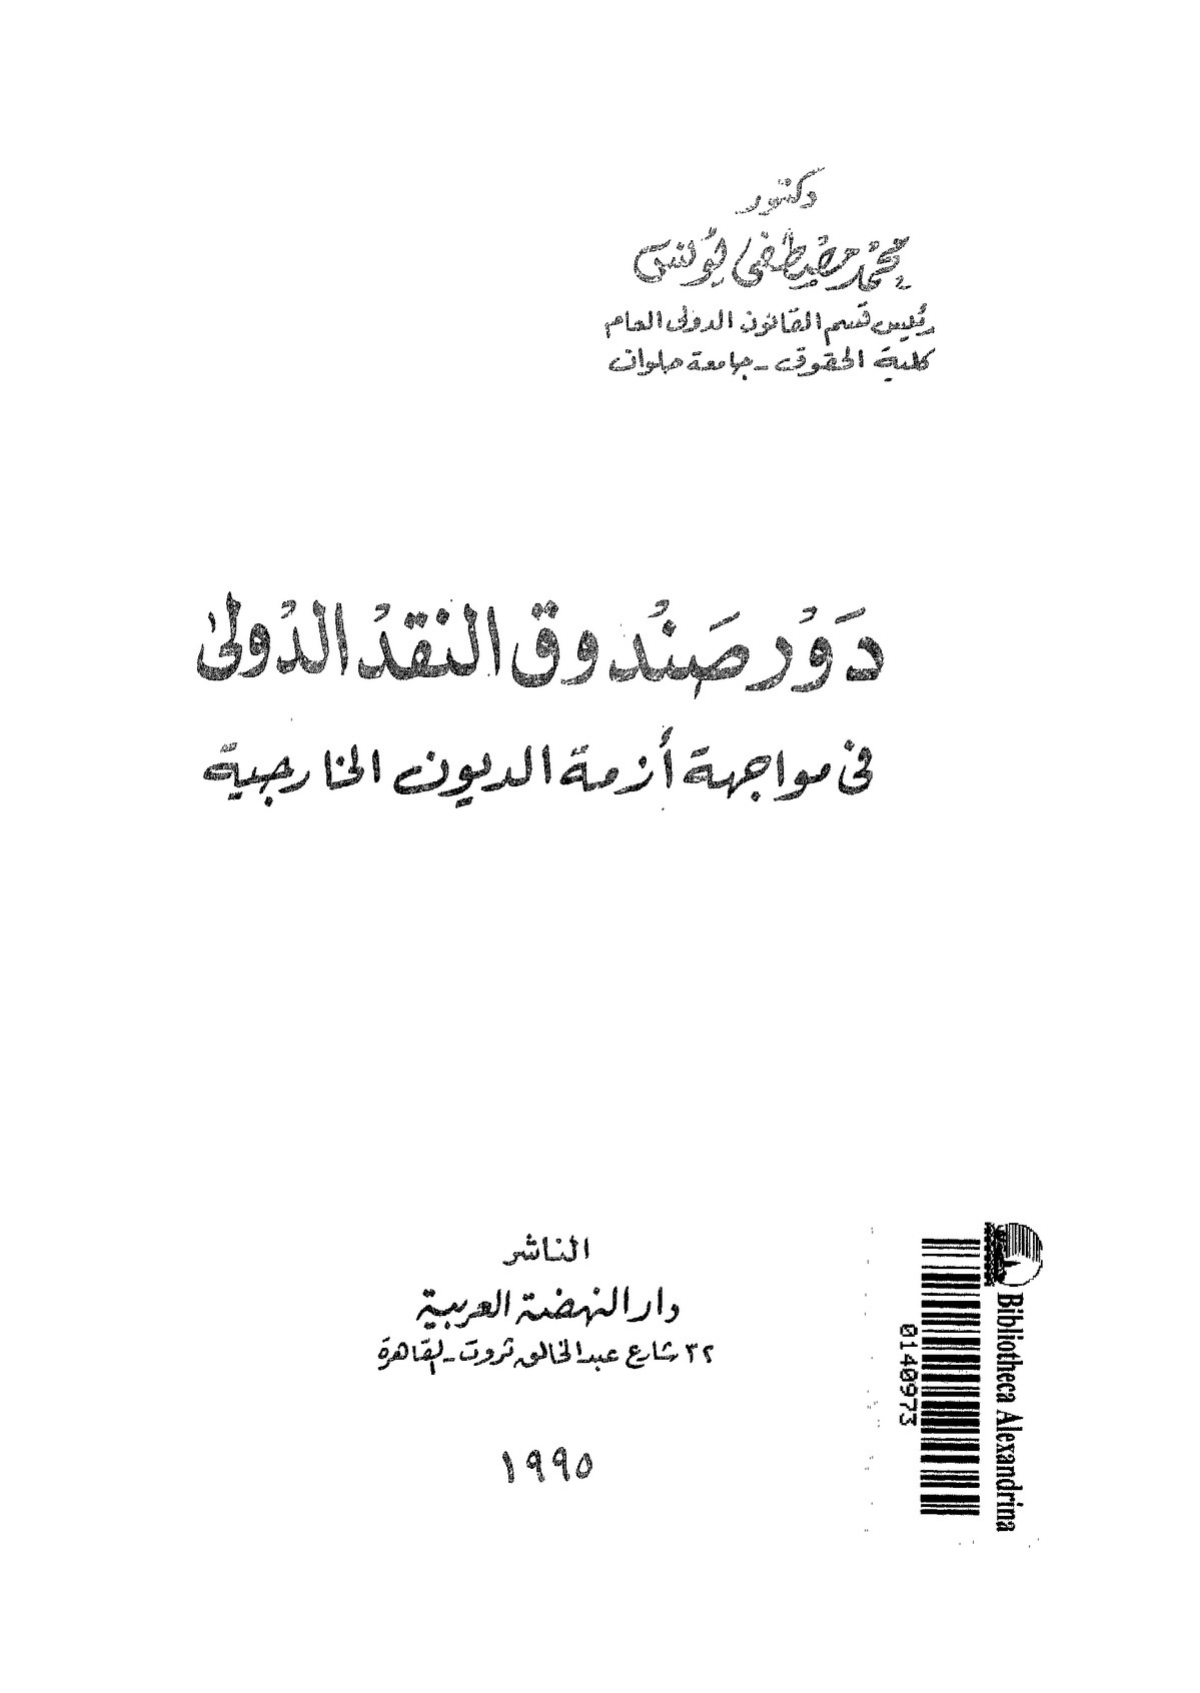 دكتور
محمد مصطفى يونس
رئيس قسم القانون الدولى العام
كلية الحقوق - جامعة حلوان
دَوْر صَنْدوق النقدْ الدْولى
فى مواجهة أزمة الديون الخارجية
الناشر
دار النهضة العربية
٣٢ شارع عبد الخالق ثروت - القاهرة
١٩٩٥
Bibliotheca Alexandrina
0140973